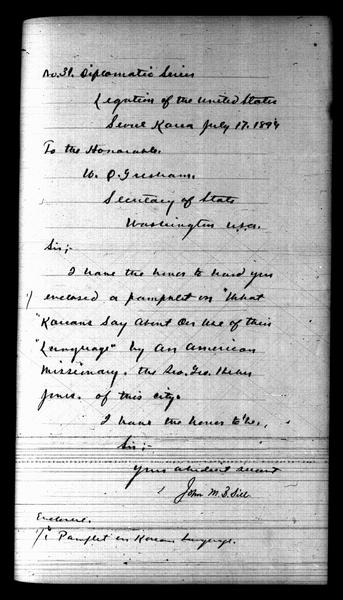 No. 31. Diplomatic Series
Legation of the United States
Seoul Korea July 17. 1894
To the Honorable.
W. Q. Gresham.
Secretary of State
Washington U.S.A.
Sir;-
I have the honor to hand you
1/ enclosed a pamphlet on "What
"Koreans Say About Our Use of their
"Language" by An American
Missionary. the Geo. Heber
Jones. of this city.
I have the honor to be.,
Sir;-
Your obedient servant
John M. B. Sill
Enclosure.
1/ Pamflet on Korean Language.